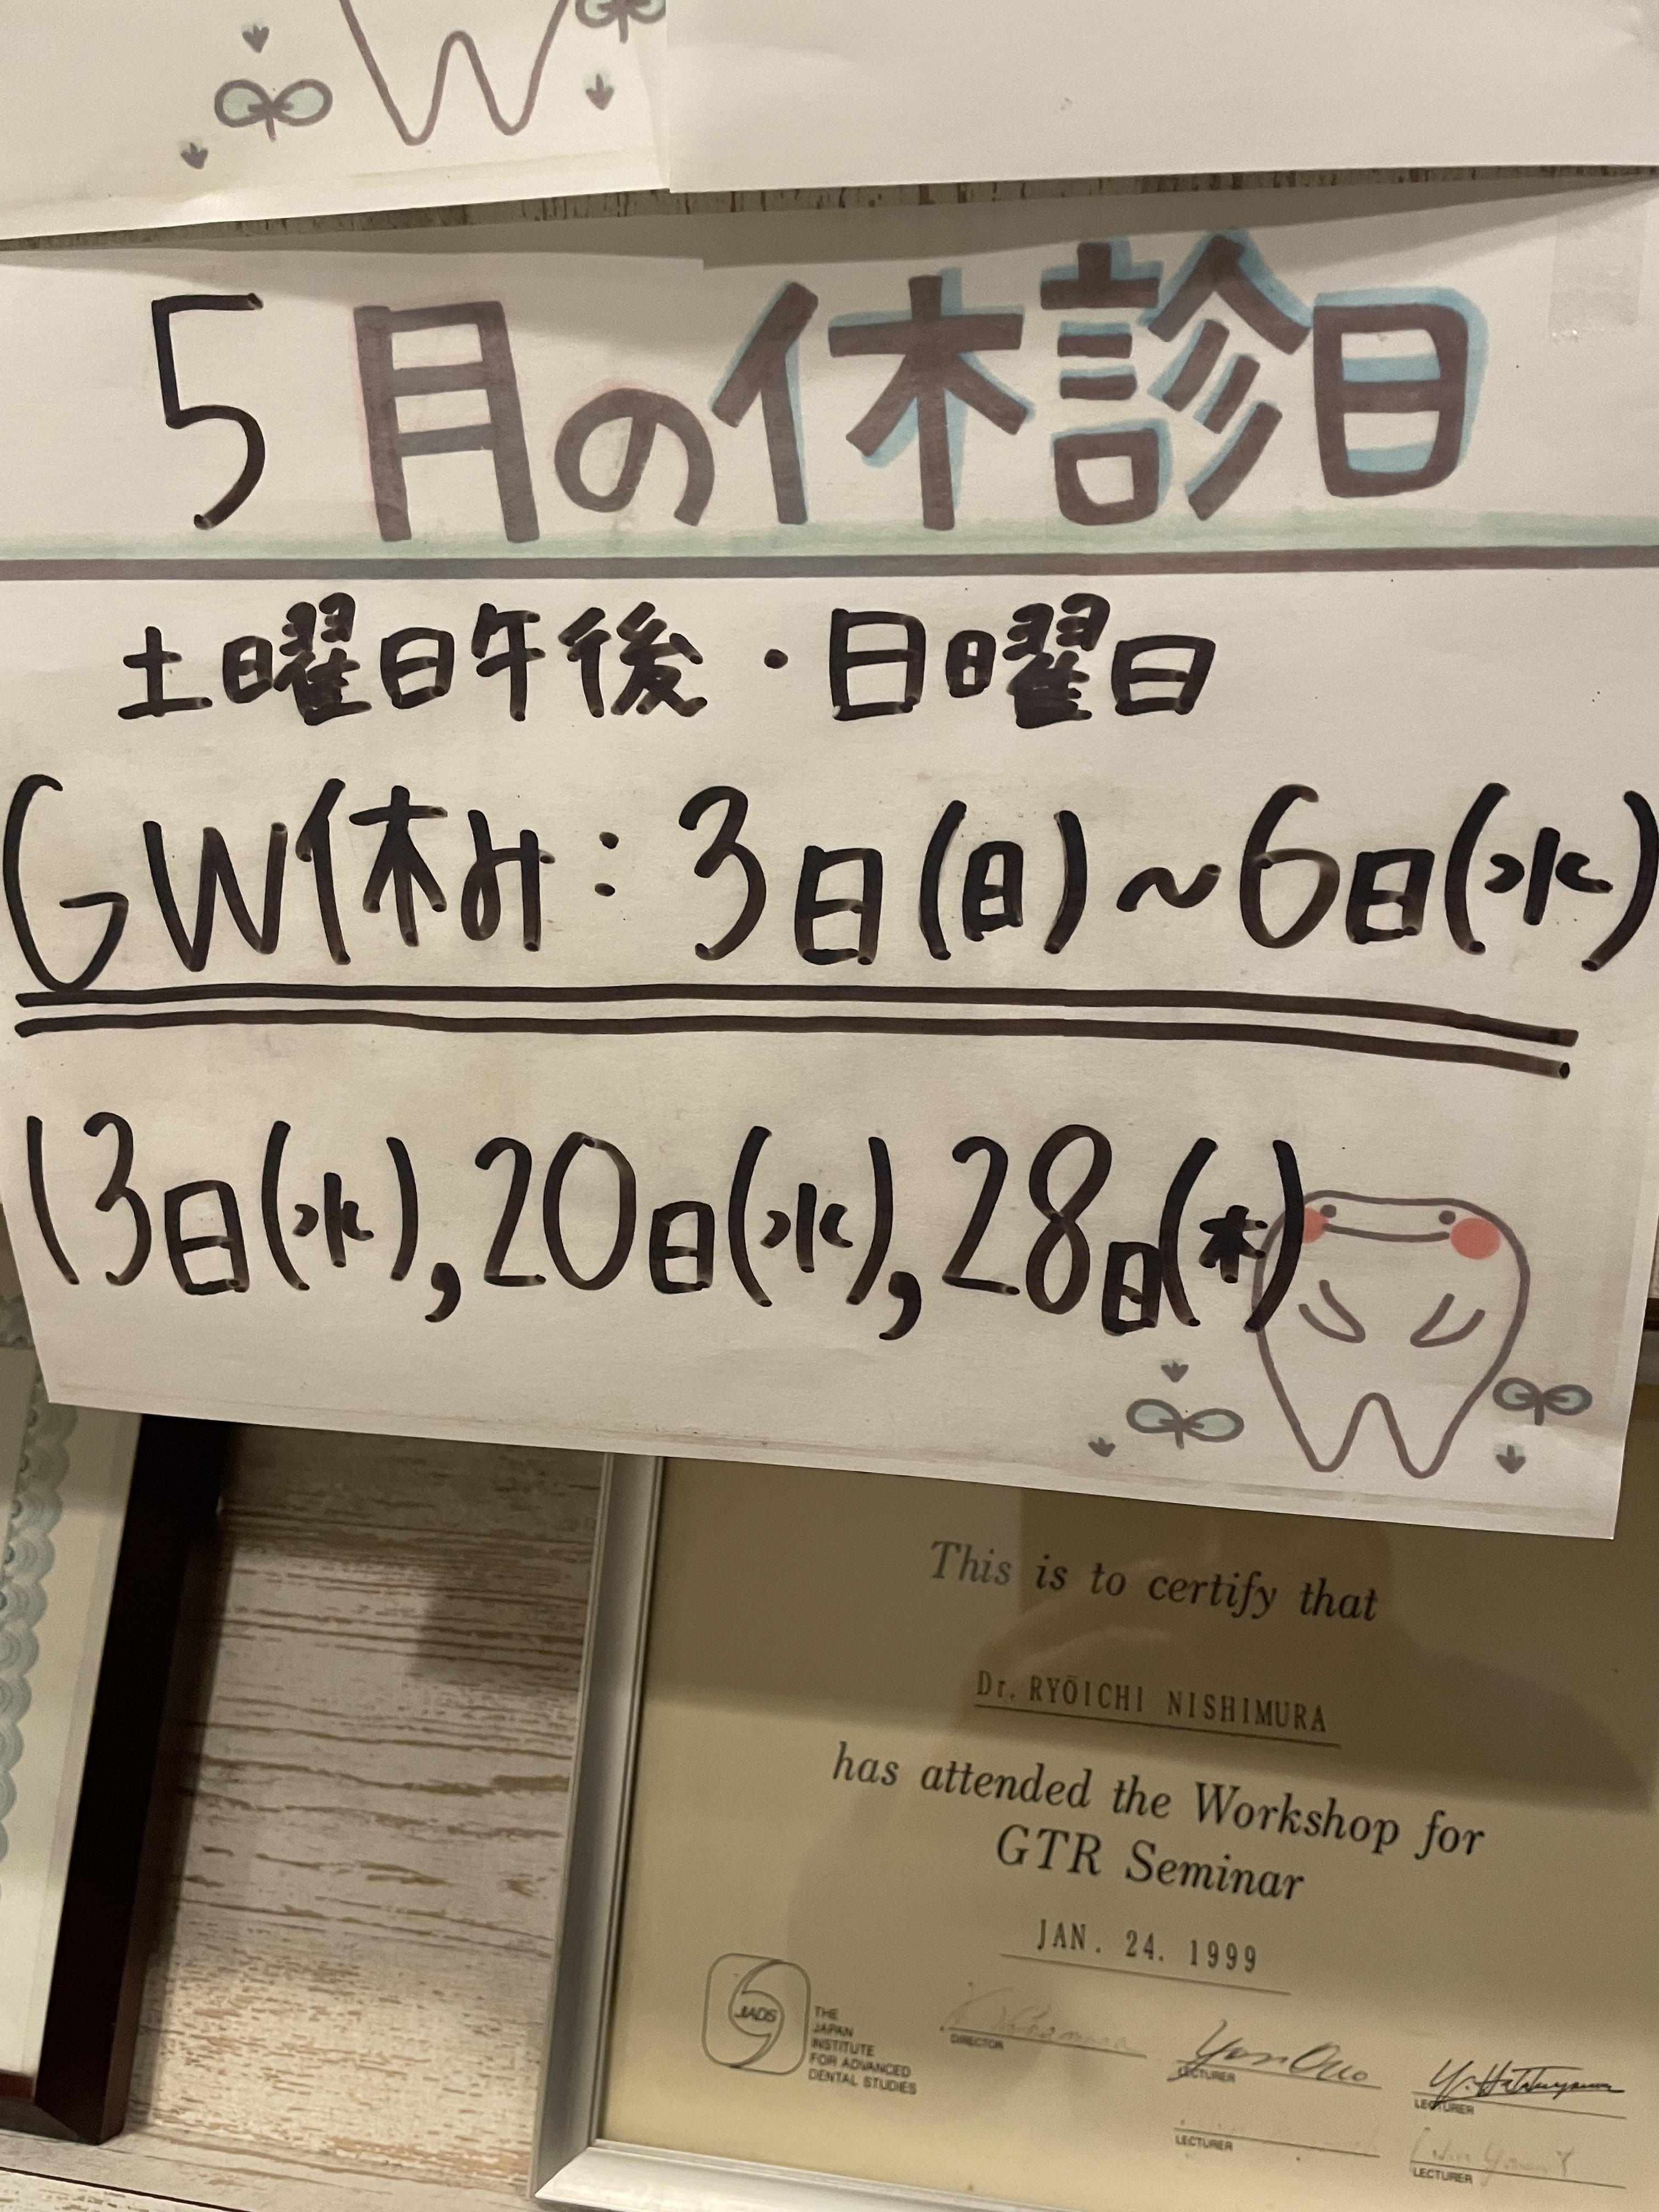 5月の休診日
土曜日午後・日曜日
GW休み:3日(日)~6日(水)
13日(水),20日(水),28日(木)
This is to certify that
Dr. RYŌICHI NISHIMURA
has attended the Workshop for
GTR Seminar
JAN. 24. 1999
JIADS
THE
JAPAN
INSTITUTE
FOR ADVANCED
DENTAL STUDIES
DIRECTOR
LECTURER
LECTURER
LECTURER
LECTURER